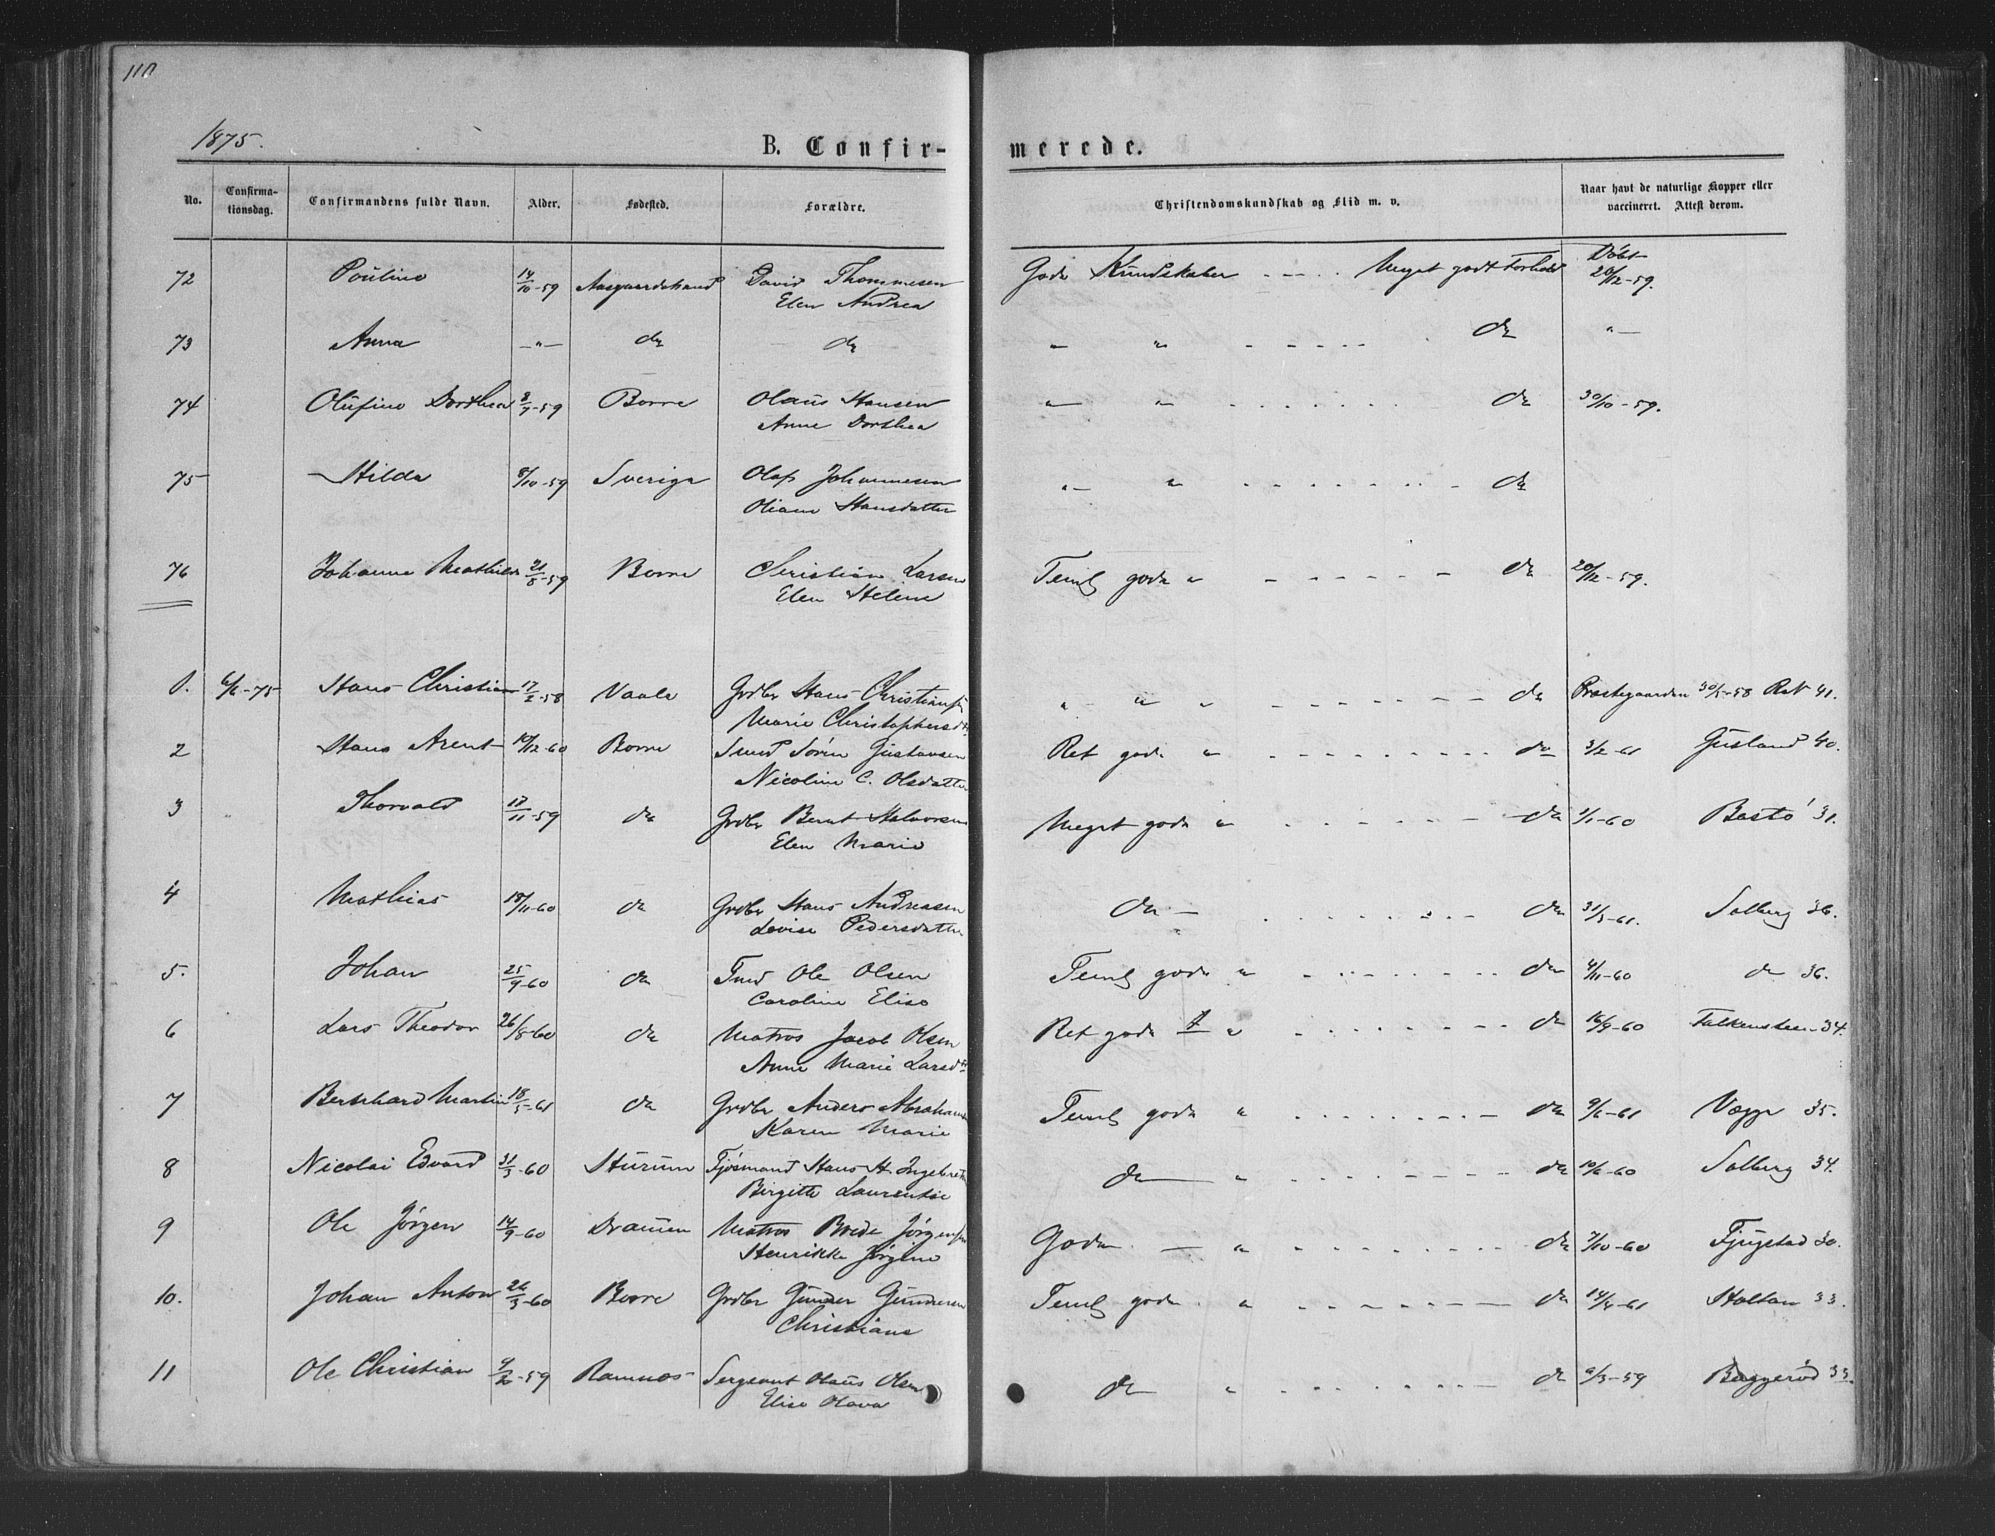 110
1875.
B. Confirmerede.
No. Confirmationsdag. Confirmandens fulde Navn. Alder. Fødested. Forældre. Christendomskundskab og Flid m. v. Naar havt de naturlige Kopper eller vaccineret. Attest derom.
72 Pouline 14/10-59 Aasgaardstrand David Thommesen Gode Kundskaber - - - - Meget godt Forhold Døbt 20/12-59.
Elen Andrea
73 Anna -"- do do " " - - - - - do "-
74 Olufine Dorthea 3/9-59 Borre Olaus Hansen " " - - - - - do 30/10-59.
Anne Dorthea
75 Hilda 8/10-59 Sverige Olaf Johannesen " " - - - - - do
Oliane Hansdatter
76 Johanne Mathilde 21/8-59 Borre Christian Larsen Teml gode " - - - - - do 20/12-59.
Elen Helene
1. 6/6-75 Hans Christian 17/2-58 Vaale Grdbr Hans Christians " " " - - - - - do Præstegaarden 30/5-58 Rst 41.
Marie Christophersdtr
2 Hans Arent 10/12-60 Borre Smed Søren Gustavsen Ret gode " - - - - - do 3/2-61 Gusland 40.
Nicoline C. Olsdatter
3 Thorvald 17/11-59 do Grdbr Bernt Halvorsen Meget gode " - - - - - do 1/1-60 Bastø 31.
Elen Marie
4 Mathias 18/11-60 do Grdbr Hans Andreasen do - - - - - - do 31/3-61. Solberg 36.
Lovise Pedersdatter
5. Johan 25/9-60 do Ole Olsen Teml gode " - - - - - do 4/11-60 do 36.
Caroline Elise
6 Lars Theodor 26/8-60 do Matros Jacob Olsen Ret gode " - - - - - do 16/9-60 Falkensten 34.
Anne Marie Larsdtr
7 Bernhard Martin 18/5-61 do Grdbr Anders Abraham Teml gode " - - - - - do 9/6-61 35.
Karen Marie
8 Nicolai Edvard 31/3-60 Sturum Fjøsmand Hans H. Ingebretsen do " - - - - - do 10/6-60 Solberg 34.
Birgitte Laurentse
9 Ole Jørgen 14/9-60 Dramen Matros Brede Jørgensen Gode - " - - - - - do 7/10-60 Fjugstad 30.
Henrikke Jørgine
10. Johan Anton 26/3-60 Borre Grdbr Gunder Gundersen Teml gode " - - - - - do 14/4-61 Holtan 33.
Christiane
11 Ole Christian 9/2-59 Ramnæs Sergeant Olaus Olsen do " - - - - - do 6/3-59 Baggerød 33.
Elise Olava